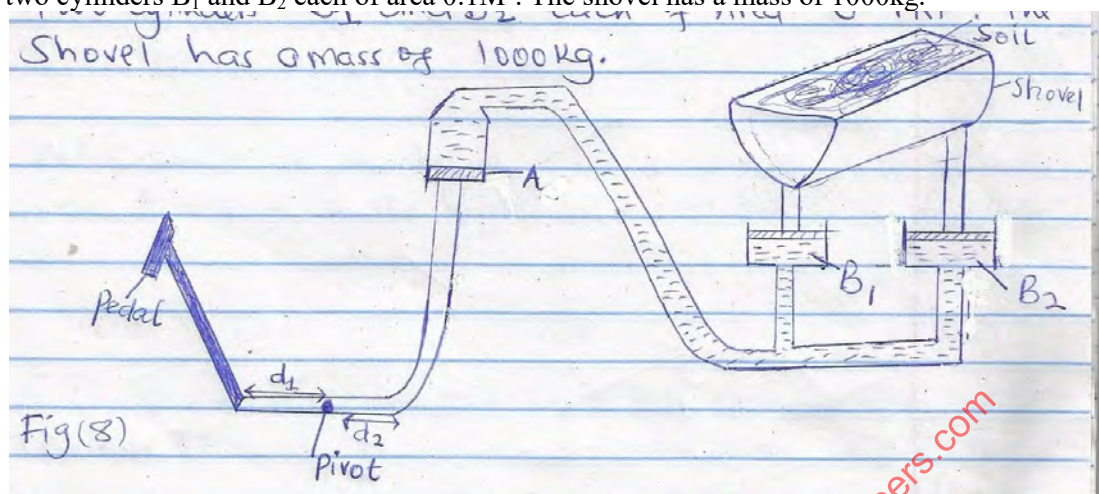 two cylinders B₁ and B₂ each of area 0.1M². The shovel has a mass of 1000kg.
Shovel has a mass of 1000kg.
Soil
Shovel
A
B₁
B₂
Pedal
d₁
d₂
Fig(8)
Pivot
ers.com